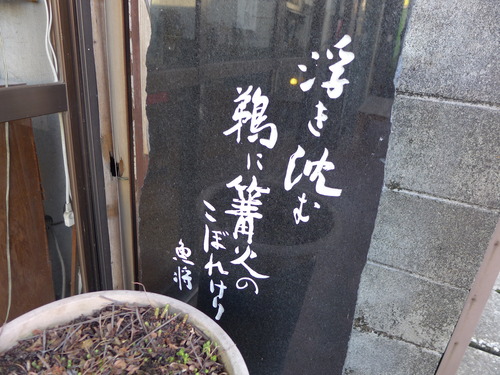 浮き沈む
鵜に篝火の
こぼれけり
魚将